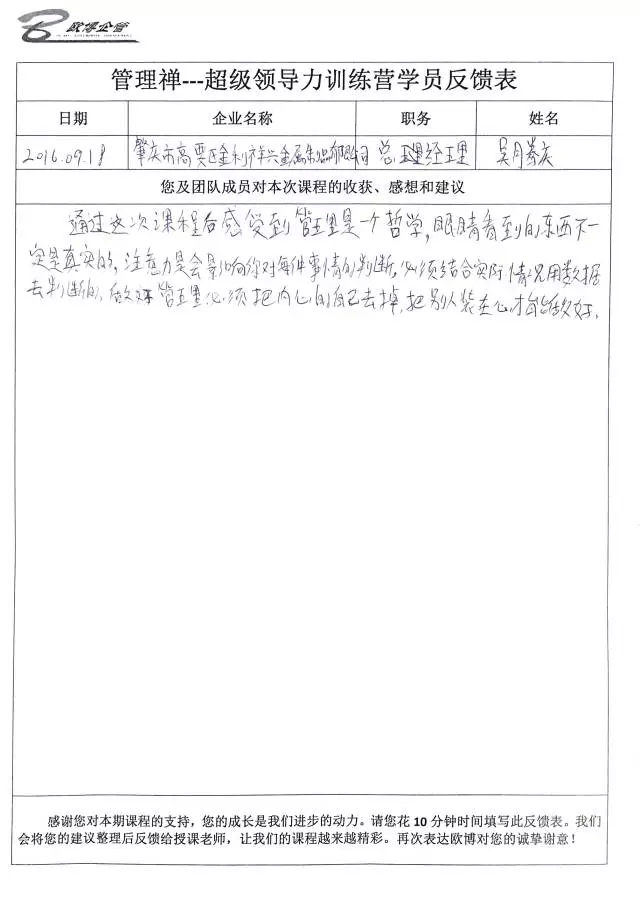 欧博企管
管理禅---超级领导力训练营学员反馈表
日期 企业名称 职务 姓名
2016.09.18 肇庆市高要区金利祥兴金属制品有限公司 总理经理 吴月
您及团队成员对本次课程的收获、感想和建议
通过这次课程后感受到管理是一个哲学,眼睛看到的东西不一
定是真实的,注意力是会影响你对每件事情的判断,必须结合实际情况用数据
去判断的,做好管理必须把内心的自己去掉,把别人装在心才能做好.
感谢您对本期课程的支持，您的成长是我们进步的动力。请您花 10 分钟时间填写此反馈表。我们
会将您的建议整理后反馈给授课老师，让我们的课程越来越精彩。再次表达欧博对您的诚挚谢意！